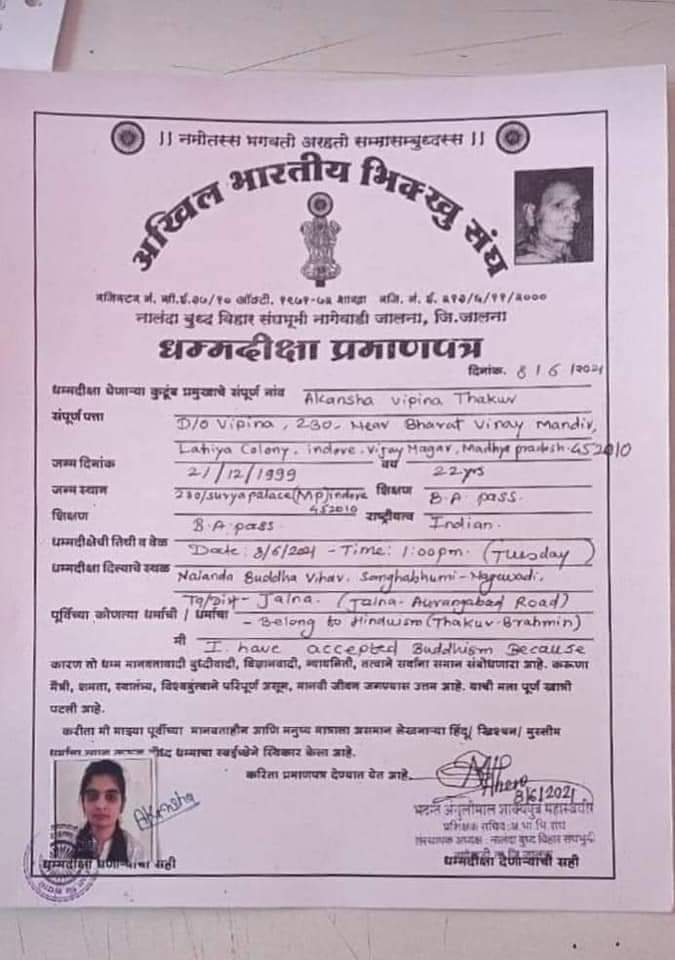 ।। नमोतस्स भगवतो अरहतो सम्मासम्बुध्दस्स ।।
अखिल भारतीय भिक्खु संघ
नालंदा बुध्द विहार संघभूमी नागेवाडी जालना, जि.जालना
धम्मदीक्षा प्रमाणपत्र
दिनांक. 8 / 6 /2021
धम्मदीक्षा घेणाऱ्या कुटूंब प्रमुखाचे संपूर्ण नांव Akansha Vipina Thakur
संपूर्ण पत्ता D/o Vipina, 230, Near Bharat Vinay Mandir,
Lahiya Colony, indore. Vijay Nagar, Madhya pradesh. 452010
जन्म दिनांक 21/12/1999 वय 22 yrs
जन्म स्थान 230/surya palace(MP)indore 452010 शिक्षण B.A. pass.
शिक्षण B.A. pass. राष्ट्रीयत्व Indian.
धम्मदीक्षेची तिथी व वेळ Date: 8/6/2021 - Time: 1:00pm. (Tuesday)
धम्मदीक्षा दिल्याचे स्थळ Nalanda Buddha Vihar, Sanghabhumi-Nagewadi,
Tq/Dist- Jalna. (Jalna-Aurangabad Road)
पूर्विच्या कोणत्या धर्माची / धर्माचा - Belong to Hinduism (Thakur-Brahmin)
मी I have accepted Buddhism Because
कारण तो धम्म मानवतावादी बुध्दीवादी, विज्ञानवादी, न्यायनिती, तत्वाने सर्वांना समान संबोधणारा आहे. करूणा
मैत्री, क्षमता, स्वातंत्र्य, विश्वबंधुत्वाने परिपूर्ण असून, मानवी जीवन जगण्यास उत्तम आहे. याची मला पूर्ण खात्री
पटली आहे.
करीता मी माझ्या पूर्वीच्या मानवताहीन आणि मनुष्य मात्राला असमान लेखनाऱ्या हिंदू/ ख्रिश्चन/ मुस्लीम
धम्माचा स्वईच्छेने स्विकार केला आहे.
करिता प्रमाणपत्र देण्यात येत आहे.
Akansha
Thero
8/6/2021
भदन्त अंगुलीमाल शाक्यपुत्र महास्थवीर
संस्थापक अध्यक्ष : नालंदा बुध्द विहार संघभूमी
धम्मदीक्षा घेणाऱ्याची सही
धम्मदीक्षा देणाऱ्याची सही